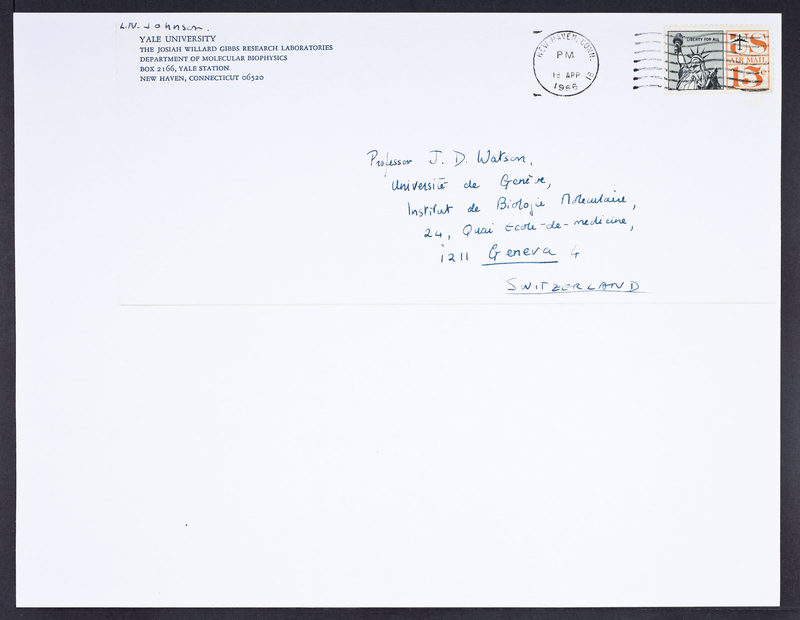 L.N. Johnson.
YALE UNIVERSITY
THE JOSIAH WILLARD GIBBS RESEARCH LABORATORIES
DEPARTMENT OF MOLECULAR BIOPHYSICS
BOX 2166, YALE STATION
NEW HAVEN, CONNECTICUT 06520
NEW HAVEN, CONN.
PM
18 APR
1966
18
LIBERTY FOR ALL
US
AIR MAIL
15c
Professor J. D. Watson,
Université de Genève,
Institut de Biologie Moleculaire,
24, Quai Ecole-de-medicine,
1211 Geneva 4
SWITZERLAND